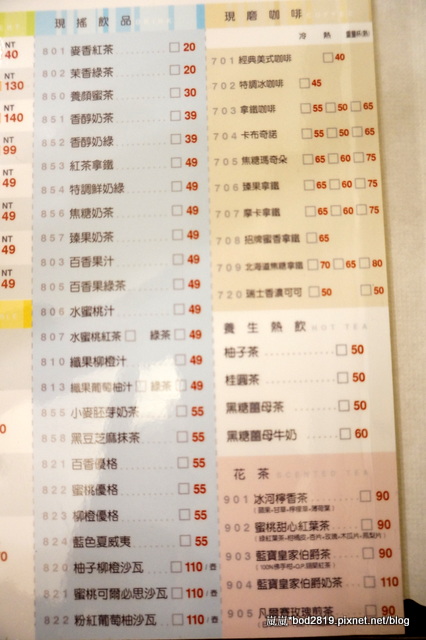 NT
40
NT
130
NT
140
NT
99
NT
49
NT
49
NT
49
NT
49
NT
49
現搖飲品
801 麥香紅茶 □ 20
802 茉香綠茶 □ 20
850 養顏蜜茶 □ 30
851 香醇奶茶 □ 39
852 香醇奶綠 □ 39
853 紅茶拿鐵 □ 49
854 特調鮮奶綠 □ 49
856 焦糖奶茶 □ 49
857 臻果奶茶 □ 49
803 百香果汁 □ 49
805 百香果綠茶 □ 49
806 水蜜桃汁 □ 49
807 水蜜桃紅茶 □ 綠茶 □ 49
810 纖果柳橙汁 □ 49
813 纖果葡萄柚汁 □ 綠茶 □ 49
855 小麥胚芽奶茶 □ 55
858 黑豆芝麻抹茶 □ 55
821 百香優格 □ 55
822 蜜桃優格 □ 55
823 柳橙優格 □ 55
824 藍色夏威夷 □ 55
820 柚子柳橙沙瓦 □ 110/壺
821 蜜桃可爾必思沙瓦 □ 110/壺
822 粉紅葡萄柚沙瓦 □ 110/壺
現磨咖啡
冷 熱
701 經典美式咖啡 □ 40
702 特調冰咖啡 □ 45
703 拿鐵咖啡 □ 55 □ 50 □ 65
704 卡布奇諾 □ 55 □ 50 □ 65
705 焦糖瑪奇朵 □ 65 □ 60 □ 75
706 臻果拿鐵 □ 65 □ 60 □ 75
707 摩卡拿鐵 □ 65 □ 60 □ 75
708 招牌蜜香拿鐵 □ 65
709 北海道焦糖拿鐵 □ 70 □ 65 □ 80
720 瑞士香濃可可 □ 50 □ 50
養生熱飲 HOT TEA
柚子茶 □ 50
桂圓茶 □ 50
黑糖薑母茶 □ 50
黑糖薑母牛奶 □ 60
花茶 SCENTED TEA
901 冰河檸香茶 □ 90
902 蜜桃甜心紅葉茶 □ 90
903 藍寶皇家伯爵茶 □ 90
904 藍寶皇家伯爵奶茶 □ 110
905 凡爾賽玫瑰煎茶 □ 90
嵐嵐*bod2819.pixnet.net/blog